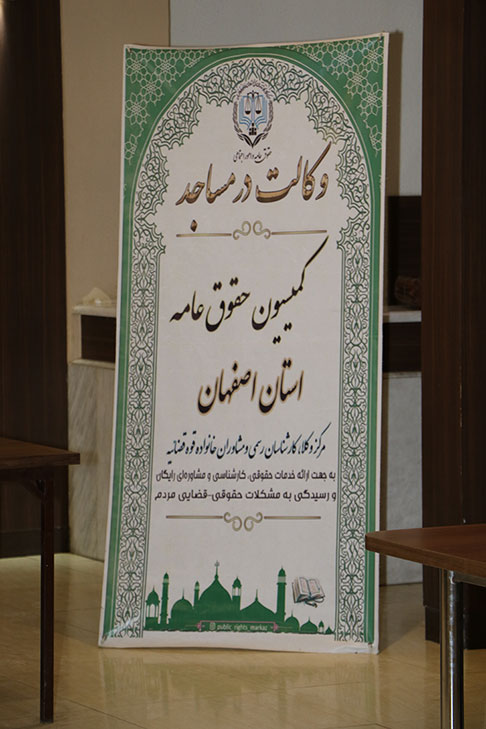 حقوق عامه و امور اجتماعی
وکالت در مساجد
کمیسیون حقوق عامه
استان اصفهان
مرکز وکلا، کارشناسان رسمی و مشاوران خانواده قوه قضائیه
به جهت ارائه خدمات حقوقی، کارشناسی و مشاوره‌ای رایگان
و رسیدگی به مشکلات حقوقی-قضایی مردم
public_rights_markaz